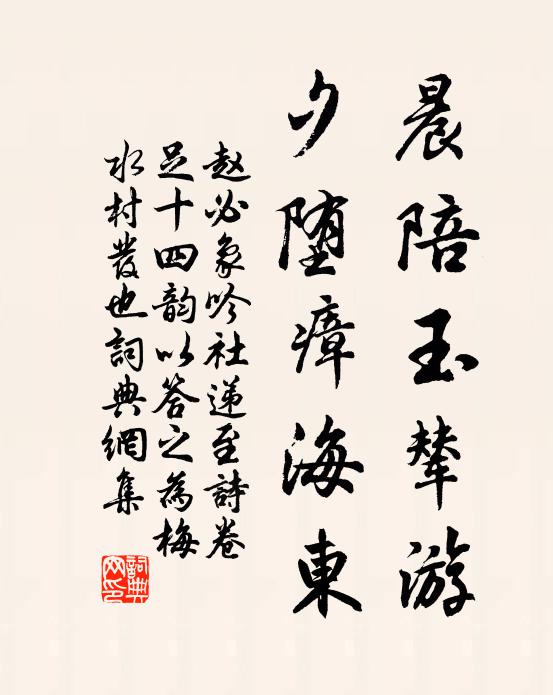 晨陪玉辇游
夕堕瘴海东
赵必象吟社递至詩卷
足十四韵以答之為梅
水村發也詞典網集
詞典
网印